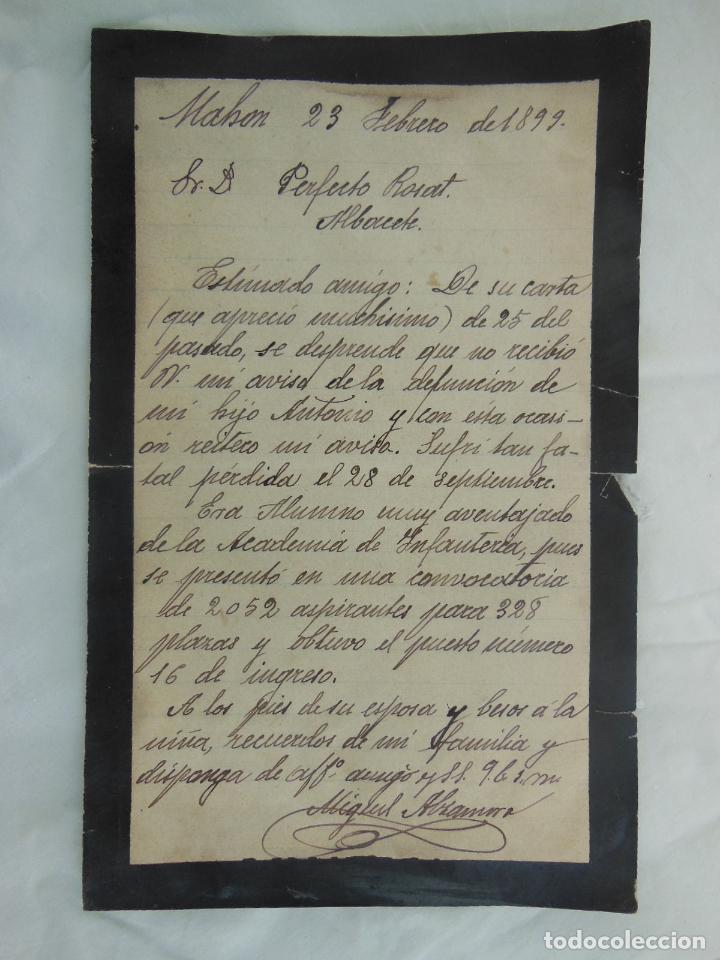 Mahon 23 Febrero de 1899.
Sr. D Perfecto Rosat.
Albacete.
Estimado amigo: De su carta
(que apreció muchisimo) de 25 del
pasado, se desprende que no recibió
V. mi aviso de la defunción de
mi hijo Antonio y con esta ocasi-
ón reitero mi aviso. Sufrí tan fa-
tal pérdida el 28 de septiembre.
Era Alumno muy aventajado
de la Academia de Infanteria, pues
se presentó en una convocatoria
de 2052 aspirantes para 328
plazas y obtuvo el puesto número
16 de ingreso.
A los pies de su esposa y besos á la
niña, recuerdos de mi familia y
disponga de aff.º amigo y S.S. q b s m
Miguel
todocoleccion.net